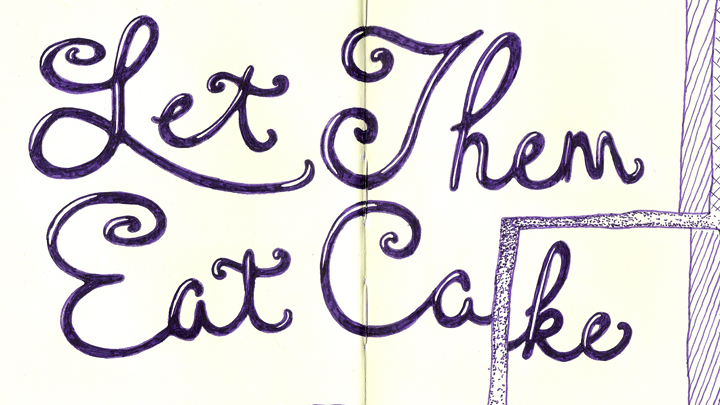 Let Them
Eat Cake